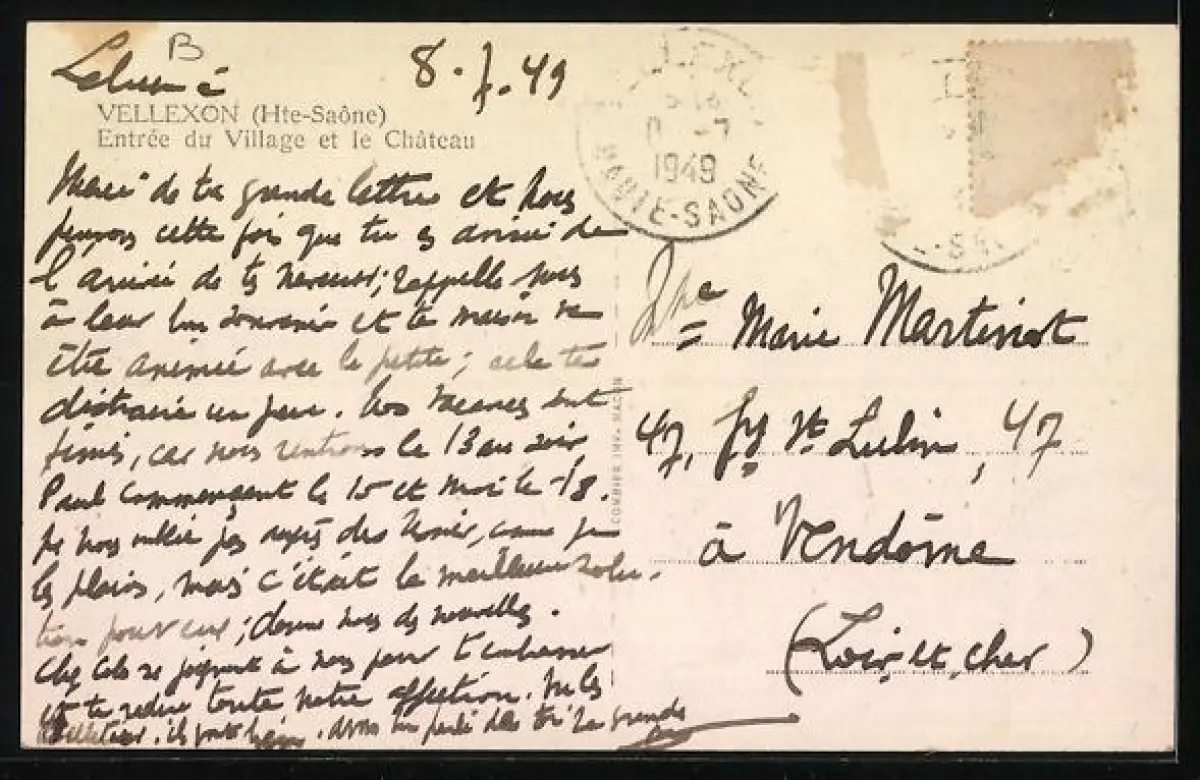 B
8.7.49
VELLEXON (Hte-Saône)
Entrée du Village et le Château
1949
HAUTE-SAONE
Merci de ta grande lettre et nous
pensons cette fois que tu es avisée de
l'arrivée de tes neveux; rappelle nous
à leur bon souvenir et ta maison va
être animée avec la petite; cela te
distraira un peu. Nos vacances sont
finies, car nous rentrons le 13 au soir
Paul commençant le 15 et moi le 18.
Ne nous oublie pas auprès des
les plains, mais c'était la meilleure solu-
tion pour eux; donne nous de nouvelles.
Chez se joignent à nous pour t'embrasser
et te redire toute notre affection.
COMBIER IMP. MACON
Marie Martinot
47, fg St Lubin, 47
à Vendôme
(Loir et cher)